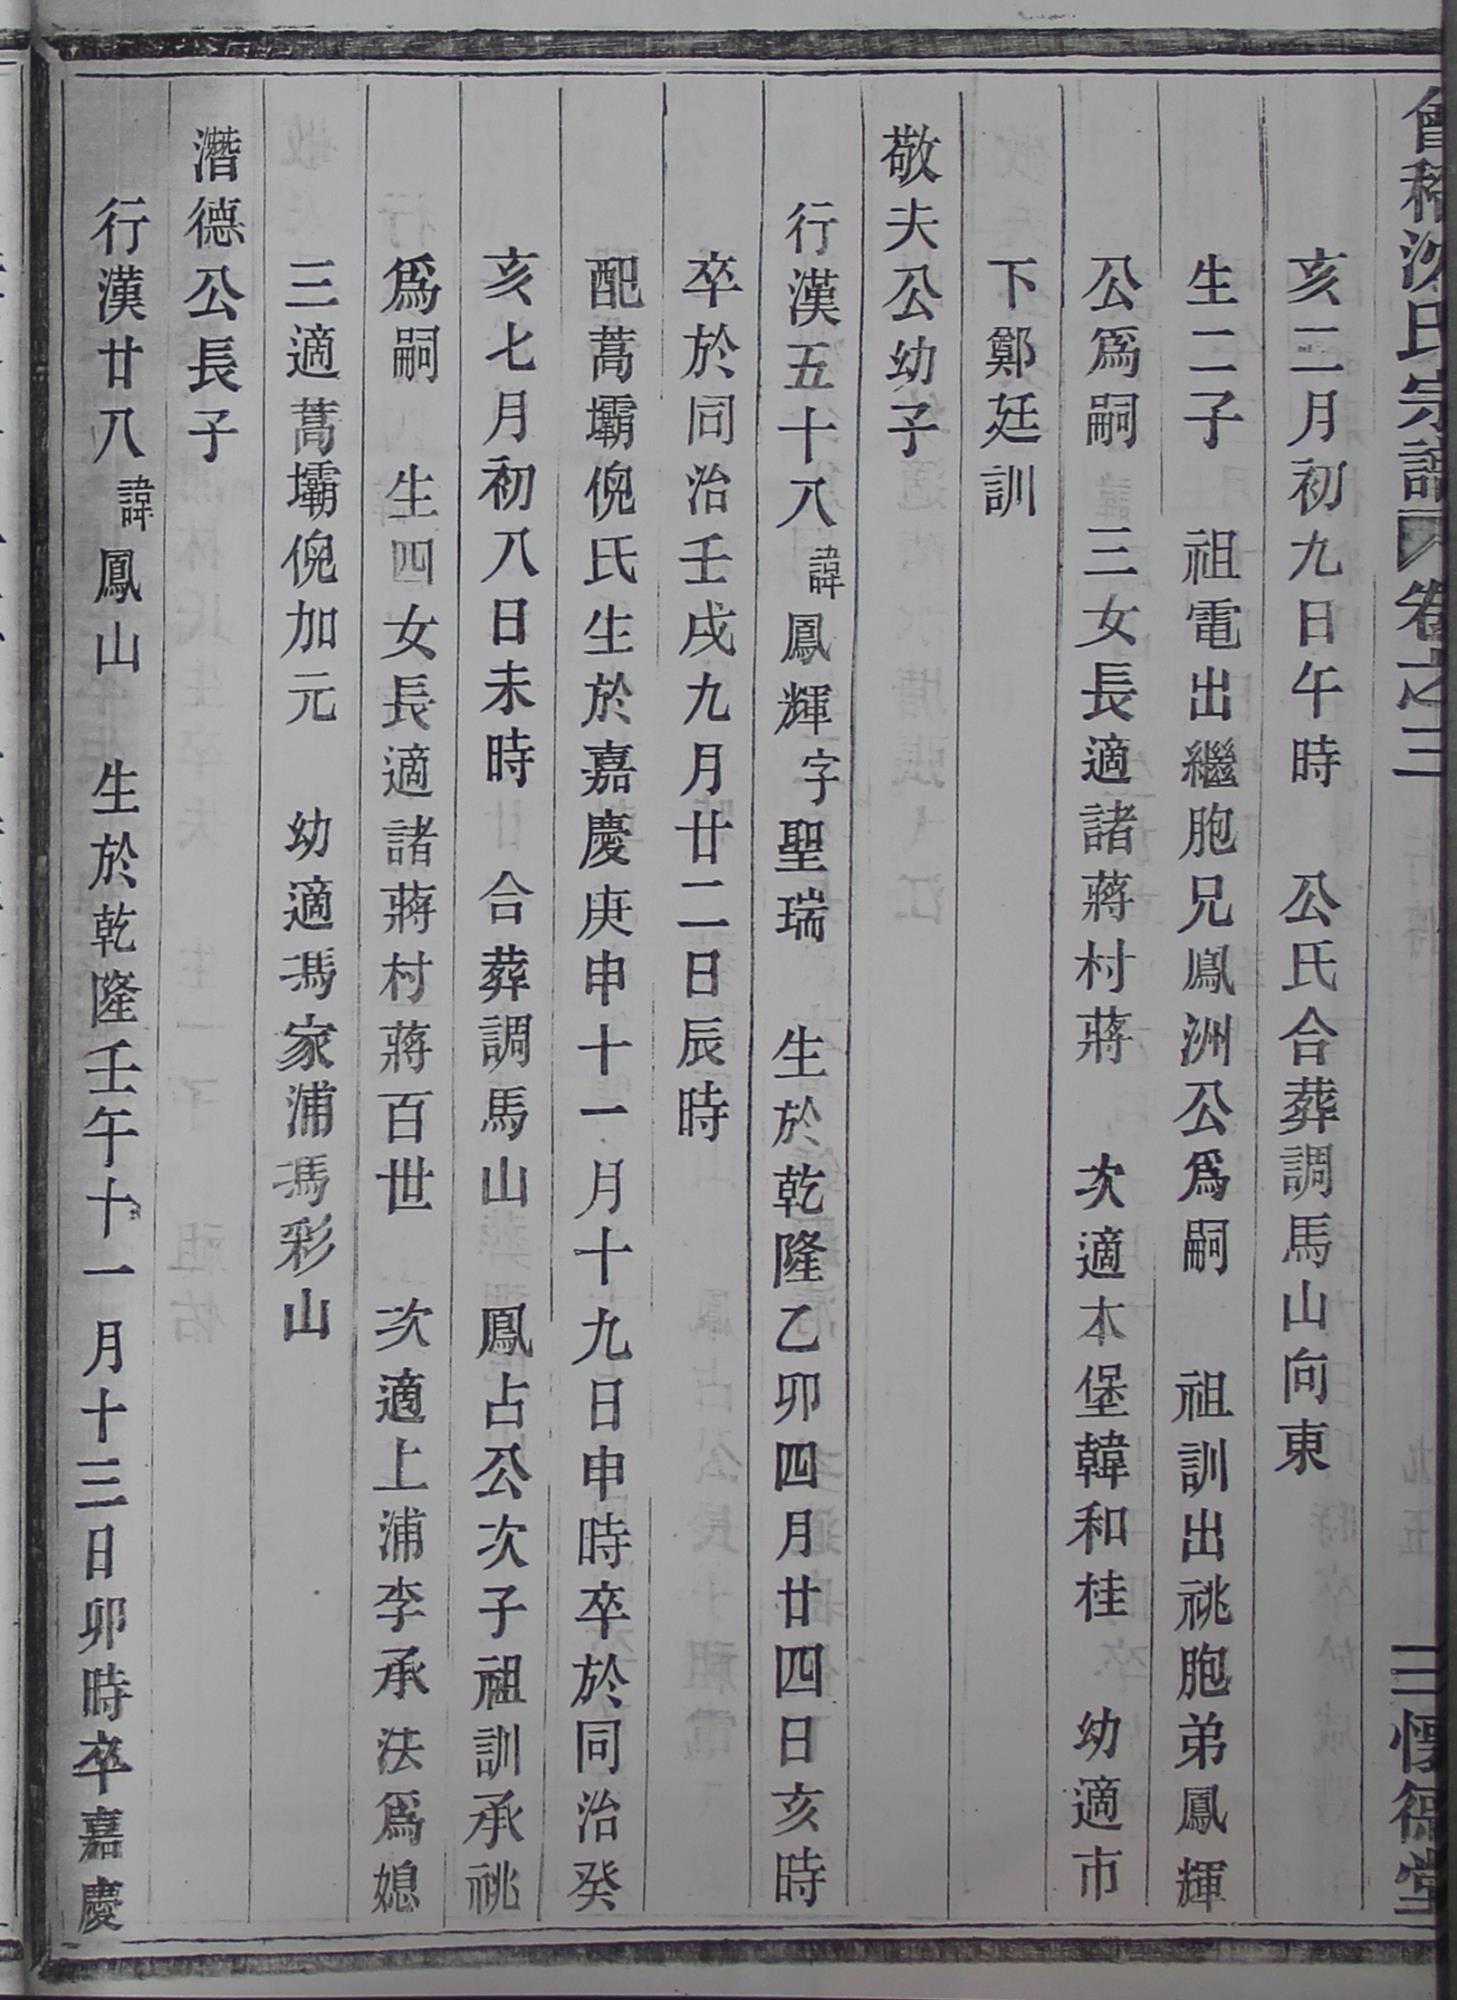 會稽沈氏宗譜 卷之三 三 懷德堂
亥三月初九日午時 公氏合葬調馬山向東
生二子 祖電出繼胞兄鳳洲公爲嗣 祖訓出祧胞弟鳳輝
公爲嗣 三女長適諸蔣村蔣 次適本堡韓和桂 幼適市
下鄭廷訓
敬夫公幼子
行漢五十八諱鳳輝字聖瑞 生於乾隆乙卯四月廿四日亥時
卒於同治壬戌九月廿二日辰時
配蒿壩倪氏生於嘉慶庚申十一月十九日申時卒於同治癸
亥七月初八日未時 合葬調馬山 鳳占公次子祖訓承祧
爲嗣 生四女長適諸蔣村蔣百世 次適上浦李承法爲媳
三適蒿壩倪加元 幼適馮家浦馮彩山
潛德公長子
行漢廿八諱鳳山 生於乾隆壬午十一月十三日卯時卒嘉慶